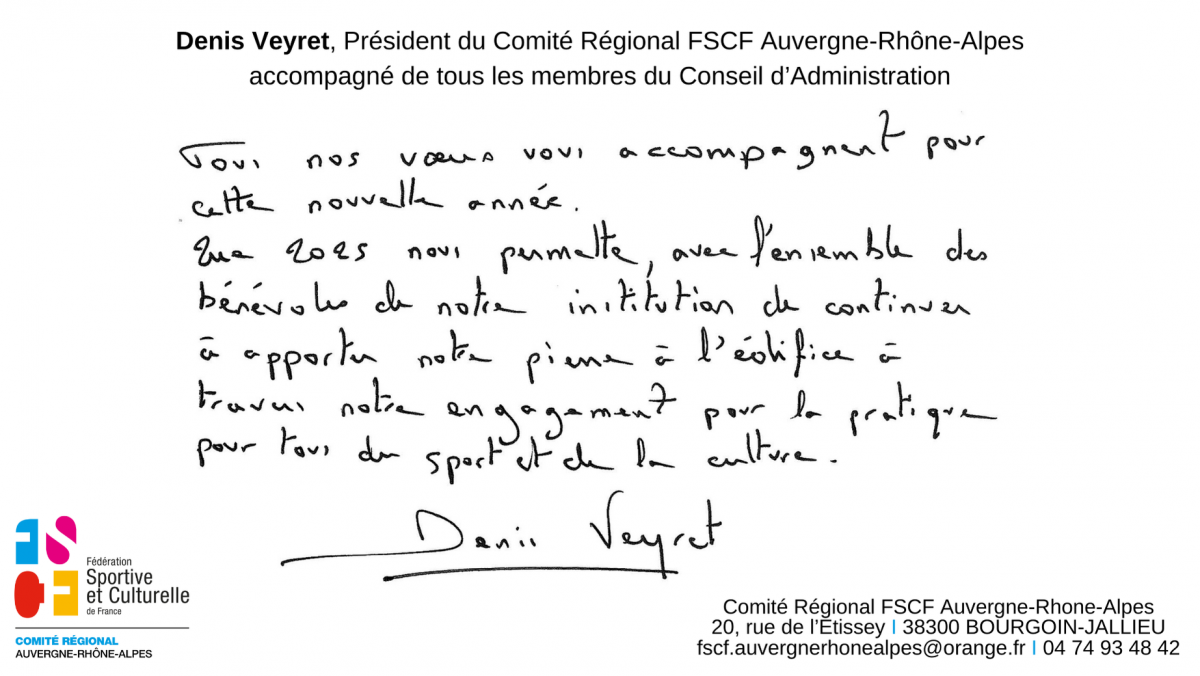 Denis Veyret, Président du Comité Régional FSCF Auvergne-Rhône-Alpes
accompagné de tous les membres du Conseil d'Administration
Tous nos vœux vous accompagnent pour
cette nouvelle année.
Que 2025 nous permette, avec l'ensemble des
bénévoles de notre institution de continuer
à apporter notre pierre à l'édifice à
travers notre engagement pour la pratique
pour tous du sport et de la culture.
Denis Veyret
FSCF
Fédération
Sportive
et Culturelle
de France
COMITÉ RÉGIONAL
AUVERGNE-RHÔNE-ALPES
Comité Régional FSCF Auvergne-Rhone-Alpes
20, rue de l'Étissey I 38300 BOURGOIN-JALLIEU
fscf.auvergnerhonealpes@orange.fr I 04 74 93 48 42